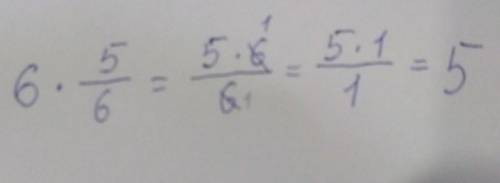 6 · 5/6 = 5 · 6 1/6 1 = 5 · 1/1 = 5